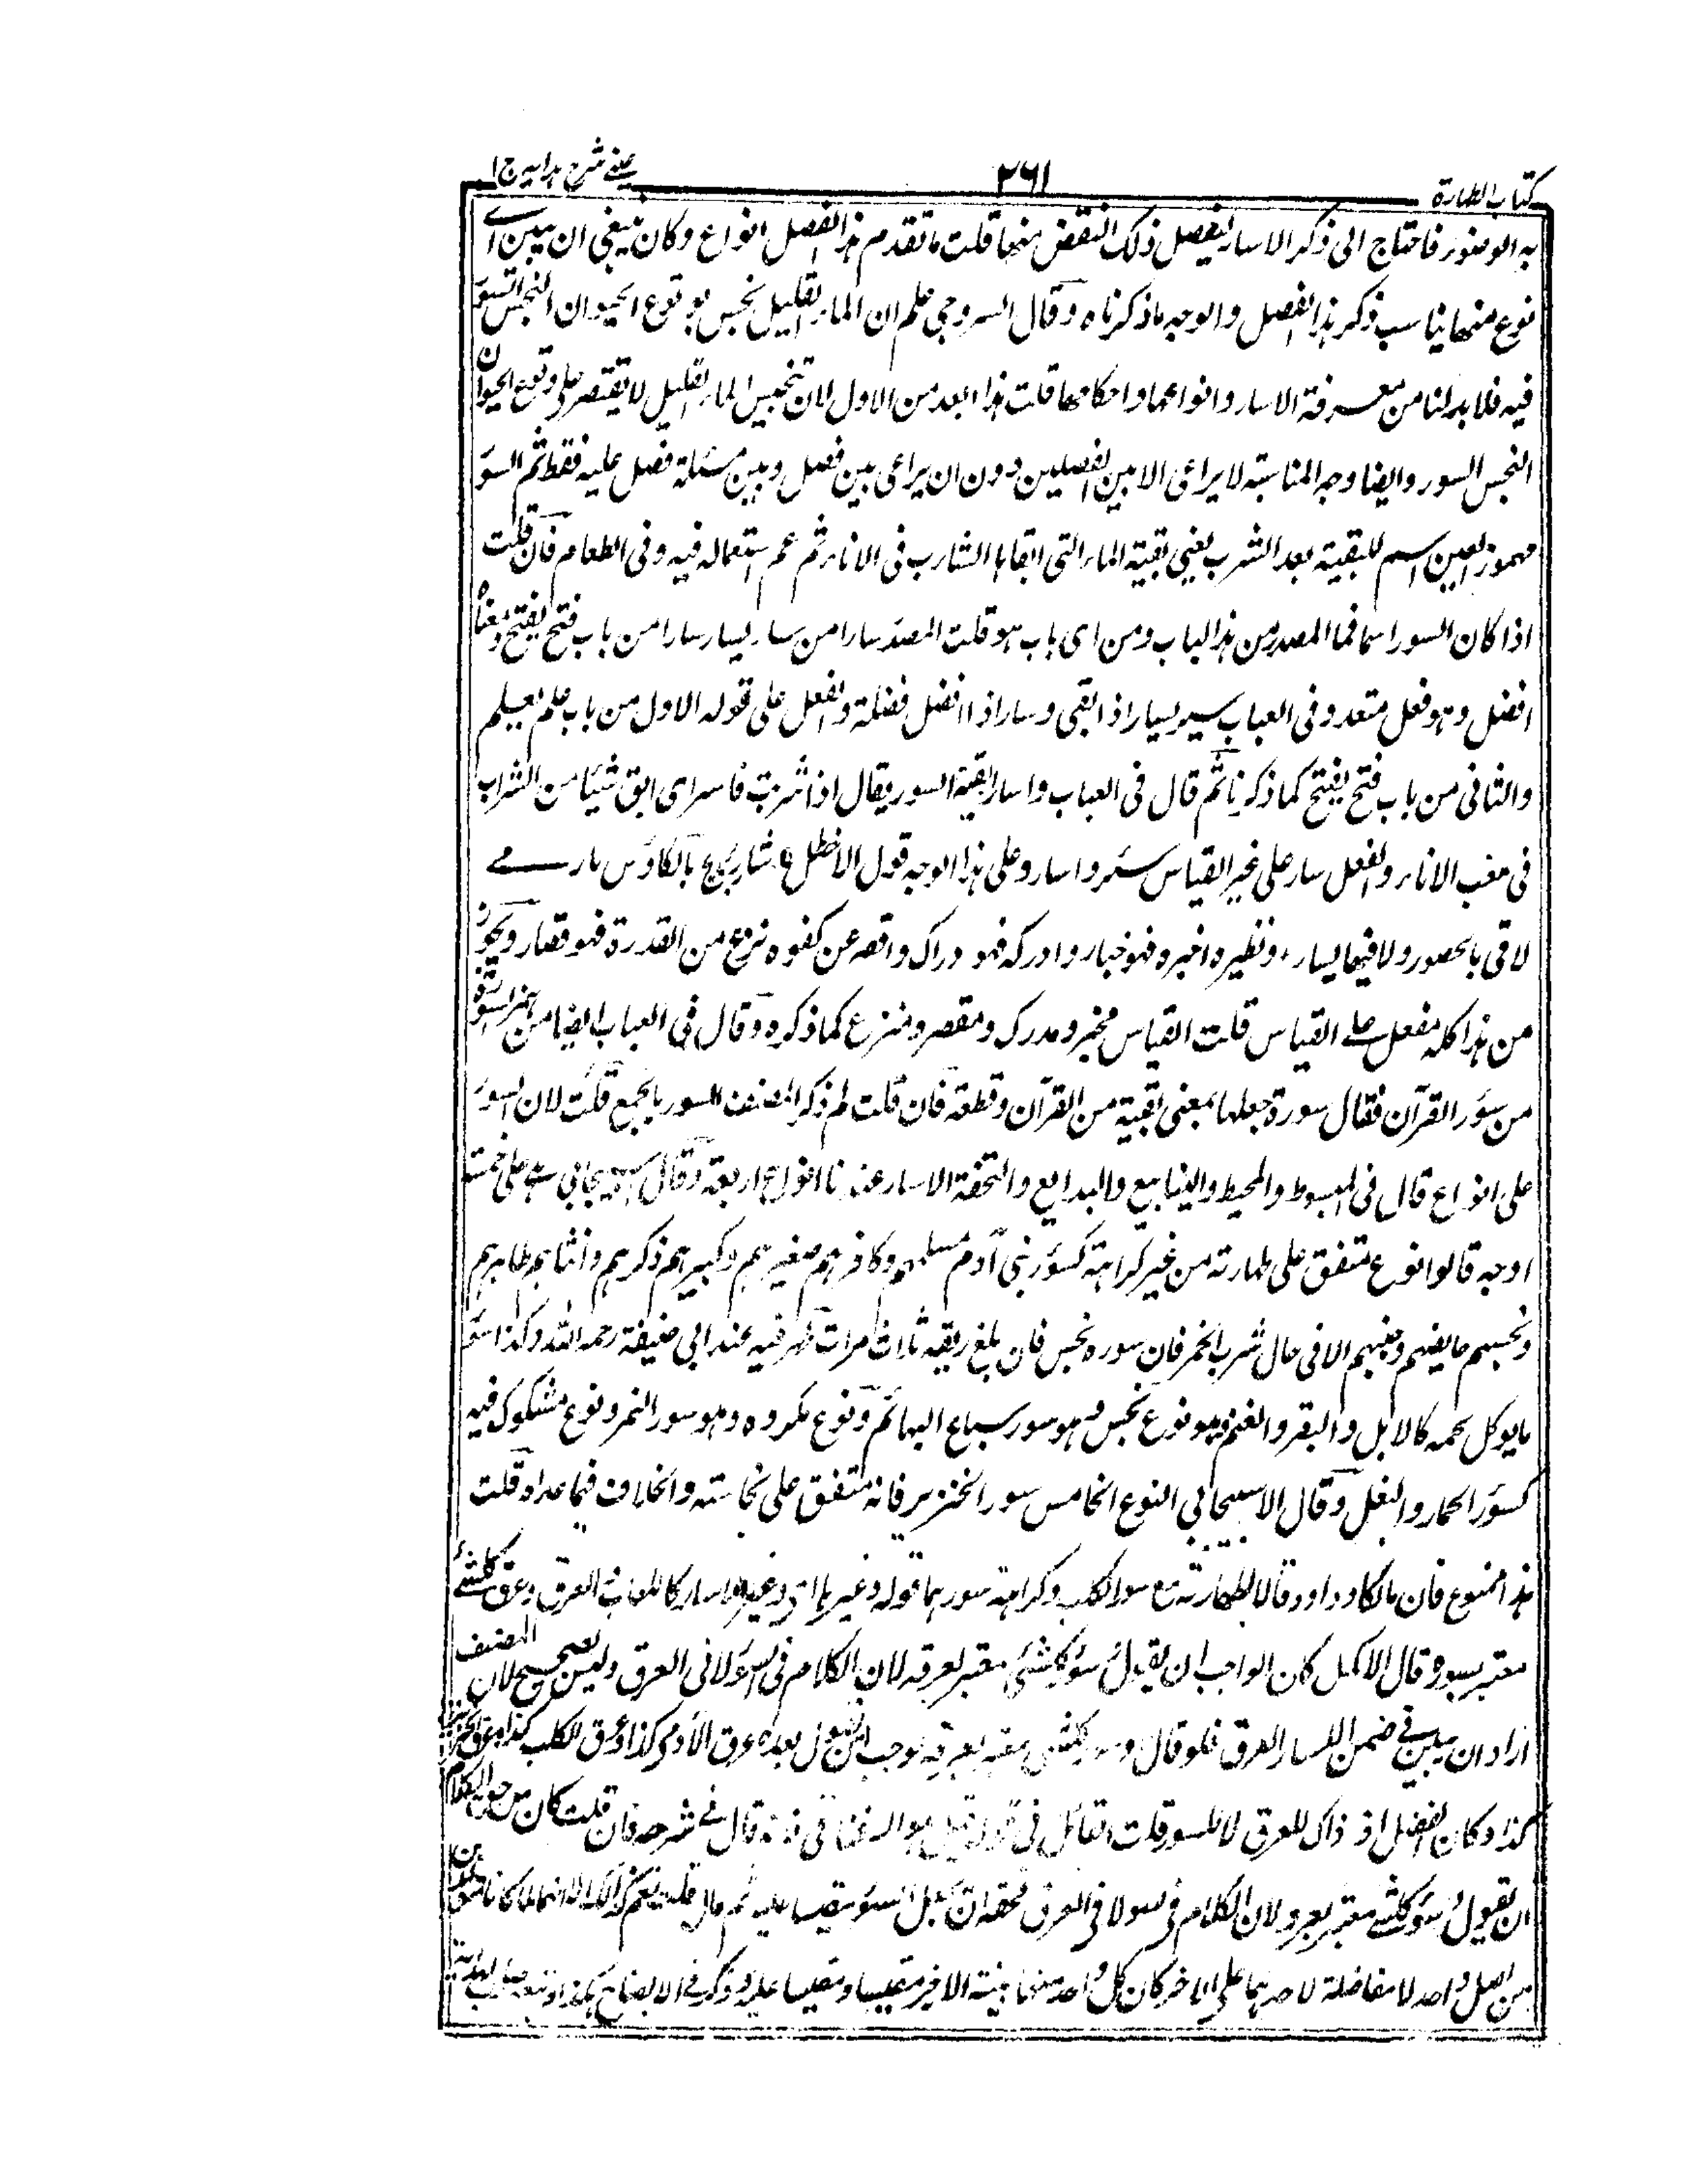 كتاب الطهارة
٢٦١
عينى شرح هدايه ج١
به الوضوء فاحتاج الى ذكر الاسار ليفصل ذلك النقض منها قلت ما تقدم هذا الفصل انواع وكان ينبغى ان يبين اى
نوع منها يناسب ذكر هذا الفصل والوجه ما ذكرناه وقال السروجى علم ان الماء القليل نجس بوقوع الحيوان النجس السور
فيه فلا بد لنا من معرفة الاسار وانواعها واحكامها قلت هذا ابعد من الاول لان تنجيس الماء القليل لا يقتصر على وقوع الحيوان
النجس السور وايضا وجه المناسبة لا يراعى الا بين الفصلين دون ان يراعى بين فصل وبين مسئلة فصل عليه فقط ثم السور
مهموز العين اسم للبقية بعد الشرب يعنى بقية الماء التى ابقاها الشارب فى الاناء ثم عم استعماله فيه وفى الطعام فان قلت
اذا كان السور اسما فما المصدر من هذا الباب ومن اى باب هو قلت المصدر سارا من سار يسار سارا من باب فتح يفتح ومعناه
افضل وهو فعل متعد وفى العباب سير يسار اذا بقى وسار اذا افضل فضلة والفعل على قوله الاول من باب علم يعلم
والثانى من باب فتح يفتح كما ذكرنا ثم قال فى العباب واسار بقية السور يقال اذا شربت فاسر اى ابق شيئا من الشراب
فى قعب الاناء والفعل سار على غير القياس سئر واسار وعلى هذا الوجه قول الاخطل ع شارب مربح بالكاوس نادمنى
لاقى بالحصور ولا فيها يسار ونظيره اخبره فهو خبار وادركه فهو دراك واقصر عن كفوه نزع من القدرة فهو قصار ويجوز
من هذا كله مفعل على القياس قلت القياس مخبر ومدرك ومقصر ومنزع كما ذكره وقال فى العباب ايضا من همز السورة
من سور القرآن فقال سورة جعلها بمعنى بقية من القرآن وقطعة فان قلت لم ذكر المصنف السور بالجمع قلت لان السور
على انواع قال فى المبسوط والمحيط والينابيع والبدايع والتحفة الاسار عندنا انواع اربعة وقال الاسبيجابى هے على خمسة
اوجه قالوا نوع متفق على طهارته من غير كراهة كسور بنى آدم مسلمهم وكافرهم صغيرهم وكبيرهم ذكرهم وانثاهم طاهرهم
ونجسهم حايضهم وجنبهم الا فى حال شرب الخمر فان سوره نجس فان بلغ ريقه ثلاث مرات طهر فيه عند ابى حنيفة رحمه الله وكذا سور
ما يوكل لحمه كالابل والبقر والغنم ونوع نجس وهو سور سباع البهائم ونوع مكروه وهو سور الهر ونوع مشكوك فيه
كسور الحمار والبغل وقال الاسبيجابى النوع الخامس سور الخنزير فانه متفق على نجاسته والخلاف فيما عداه قلت
هذا ممنوع فان مالكا وداود قالا بطهارته مع سور الكلب وكراهة سورهما قوله وغيرها اى وغير الاسار كاللعاب والعرق وعرق كل شئ
معتبر بسوره قال الاكمل كان الواجب ان يقول سور كل شئ معتبر بعرقه لان الكلام فى السور لا فى العرق وليس بصحيح لان المصنف
اراد ان يبين فى ضمن الاسار العرق فلو قال وسور كل شئ معتبر بعرقه لوجب ان يقول بعده عرق الآدمى كذا وعرق الكلب كذا وعرق الخنزير
كذا وكان الفصل اذ ذاك للعرق لا للسور قلت القائل فى قوله قيل هو السغناقى فانه قال فى شرحه فان قلت كان من حق الكلام
ان يقول سور كل شئ معتبر بعرقه لان الكلام فى السور لا فى العرق فحقه ان يجعل السور مقيسا عليه ثم قال قلت نعم كذلك الا انهما لما كانا متولدين
من اصل واحد لا مفاضلة لاحدهما على الاخر كان كل واحد منهما بمنزلة الاخر مقيسا ومقيسا عليه وذكر فى الايضاح هكذا